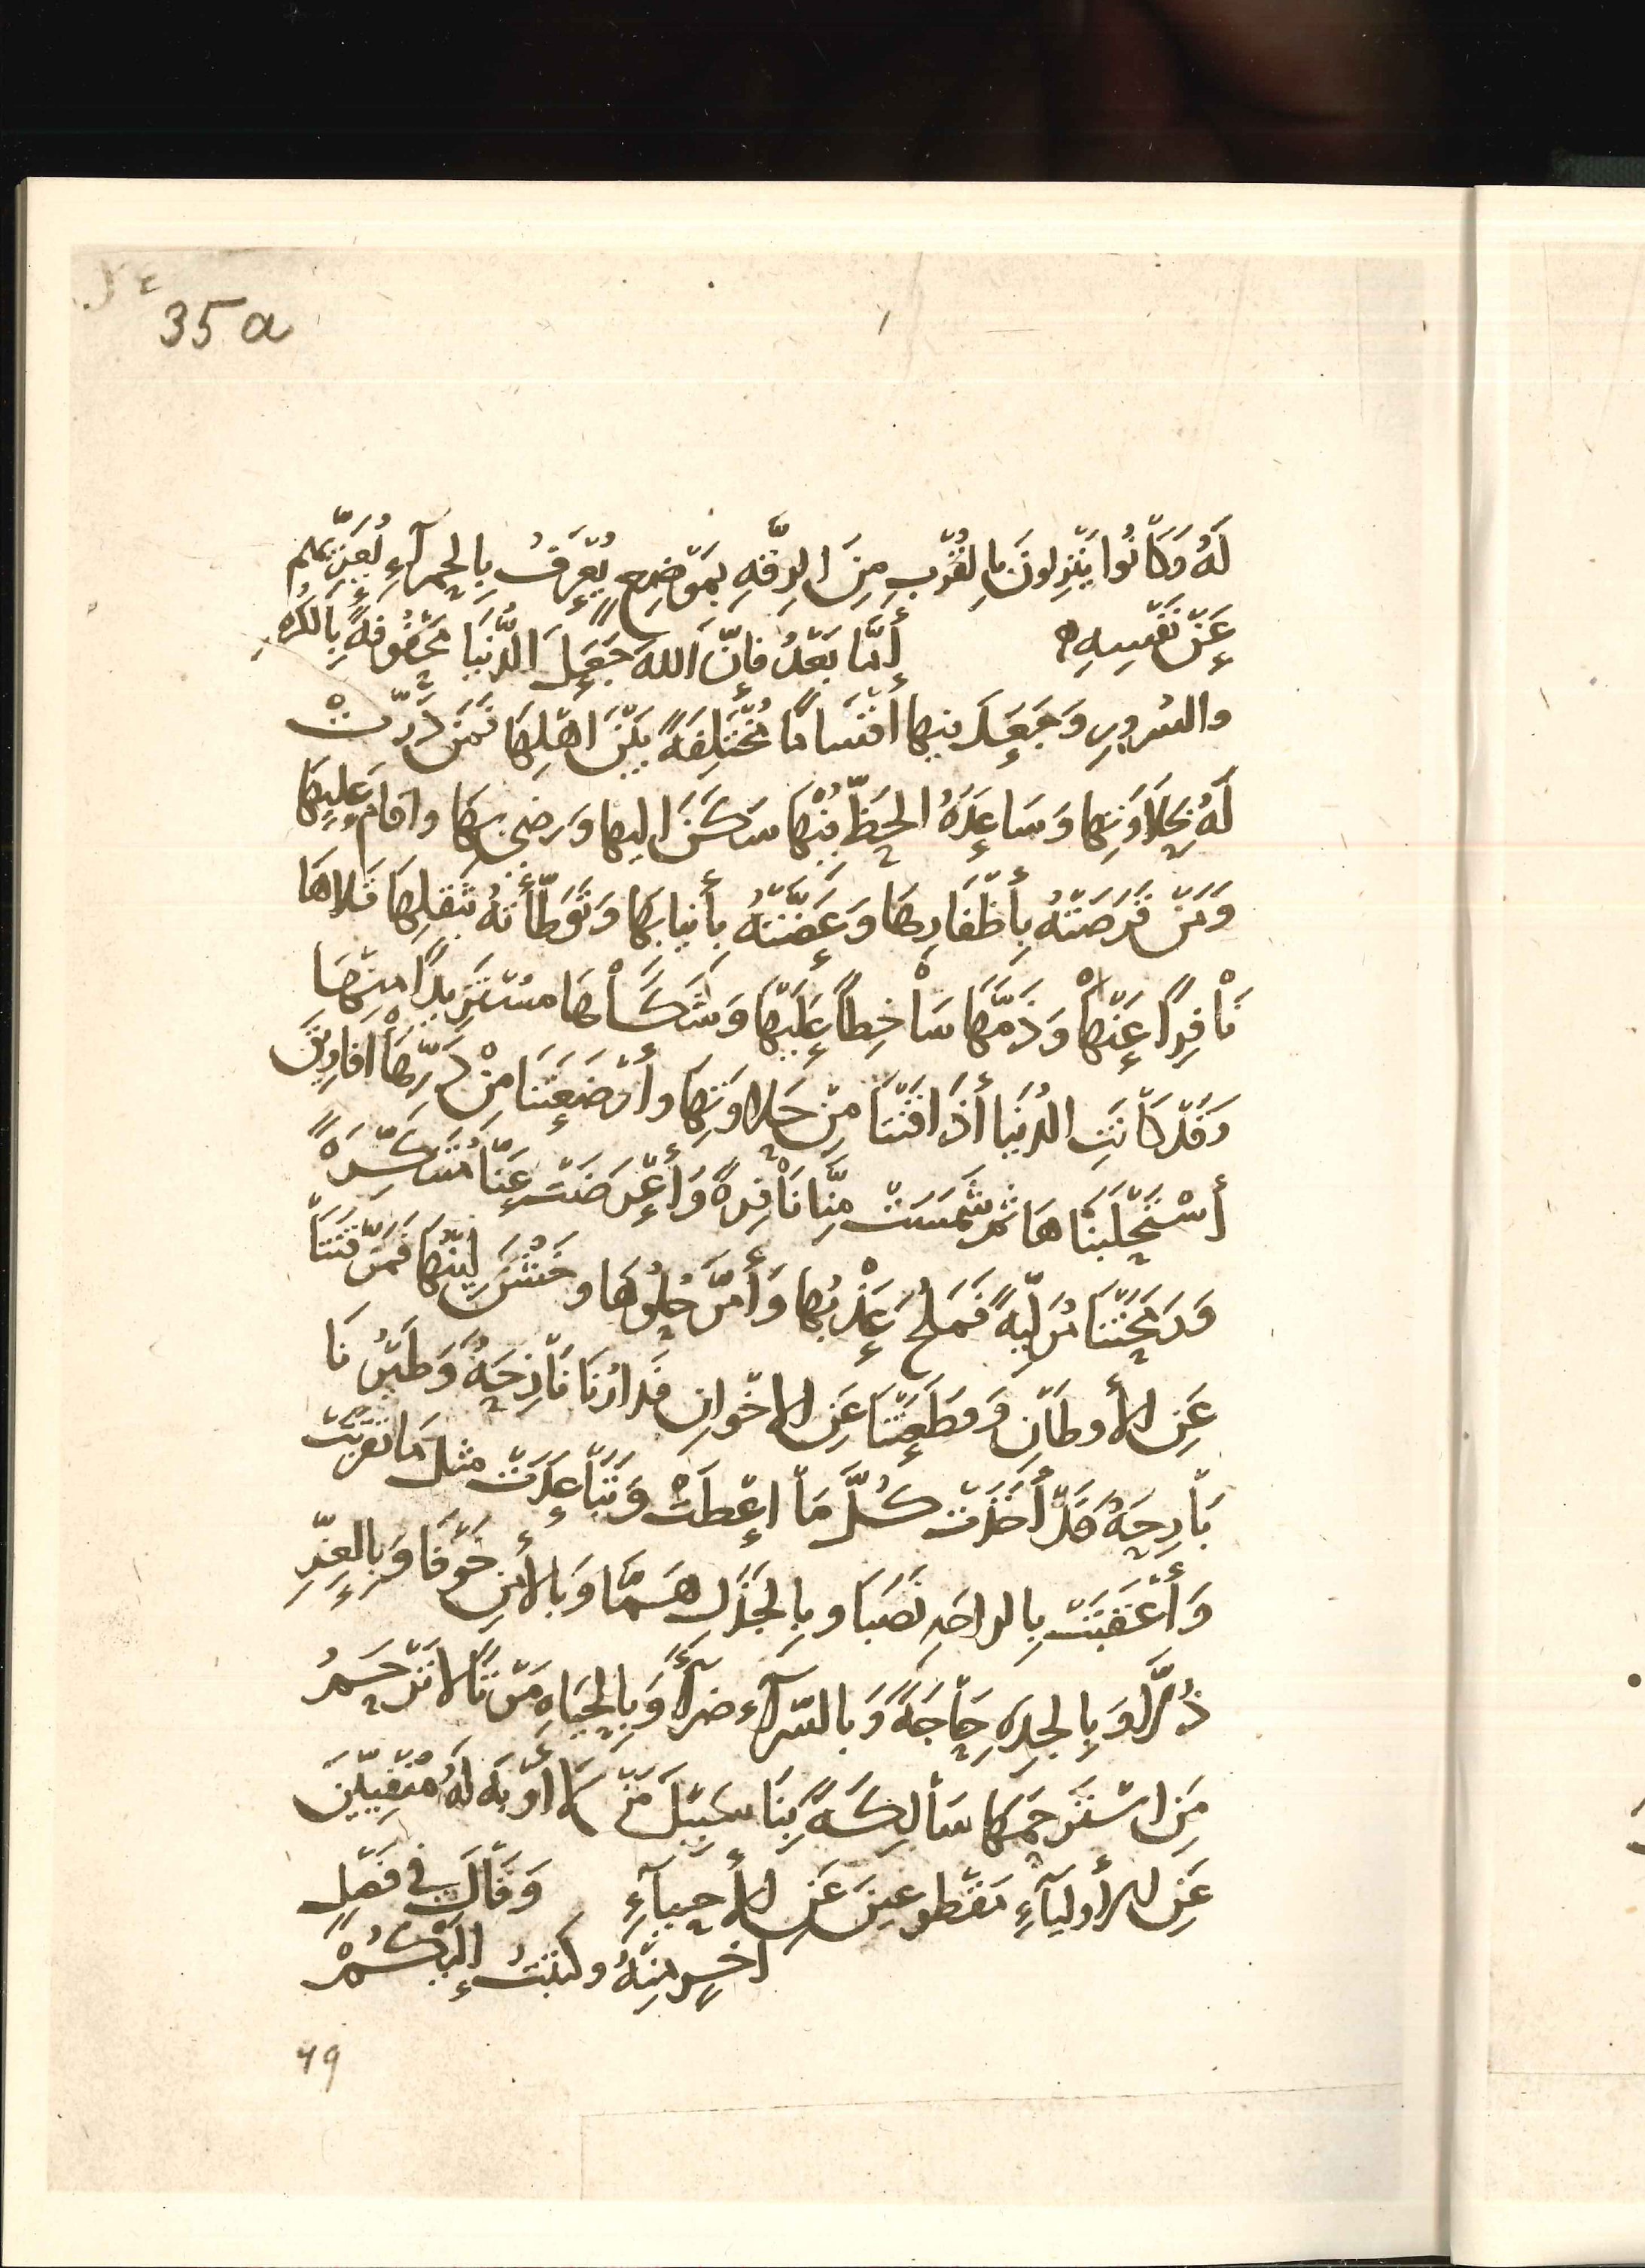 35a
لَهُ وَكَانُوا يَنْزِلونَ بِالقُرْبِ مِنَ الرقَّةِ بمَوْضِعٍ يُعْرَفُ بِالحمرَآءِ يُعَزِّيهم
عَنْ نَفْسِهِ أمَّا بَعْدُ فإنّ اللهَ جَعَلَ الدُّنيَا مَحْفُوفةً بِالكُرْهِ
والسُرورِ وَجَعَلَ فيها أقْسَامًا مُخْتَلِفَةً بَيْنَ اَهْلِهَا فَمَنْ دَرَّتْ
لَهُ بحَلَاوَتِها وَسَاعدَهُ الحَظُّ فِيْهَا سَكَنَ اليها وَرضِىَ بِهَا واقامَ عَليهَا
وَمَنْ قَرَصَتْهُ بِأظْفَارِهَا وَعَضَّتْهُ بأنيابِهَا وَتَوَطَّأتهُ بثقلِهَا قَلَاهَا
نَافِرًا عَنْهَا وَذَمَّهَا سَاخِطاً عَلَيْهَا وَشَكَاهَا مسْتَزِيدًا مِنْهَا
وَقَدْ كَانَتِ الدُنيَا أذَاقَتْنَا مِنْ حَلاوَتِهَا وأرْضَعَتْنَا مِنْ دَرِّهَا اَفَاوِيقَ
أسْتَحْلَبْنَاهَا ثم شَمَسَتْ مِنَّا نَافِرَةً وَأعْرَضَتْ عَنَّا مُتَنَكِّرَةً
وَرَمَحَتْنَا مُوَلِّيةً فَمَلُحَ عَذْبُهَا وَأمَرَّ حُلْوُهَا وخَشُنَ لِيْنُهَا فَفَرَّقَتْنَا
عَنِ الأوطَانِ وَقطَعَتْنَا عَنِ الاخْوانِ فَدارُنَا نَازِحَةٌ وَطَيْرُنَا
بَارِحَةٌ قَدْ أخَذَتْ كُلَّ مَا اعْطَتْ وَتَبَاعَدَتْ مثلَ مَا تقرّبَتْ
وَأعْقَبَتْ بِالراحَةِ نَصَبَا وبِالجَذَلِ هَمًّا وَبالأمْنِ خَوْفًا وَبِالعِزِّ
ذُلًّا وَبِالجِدَةِ حَاجَةً وَبالسّرآءِ ضرآءً وَبِالحَيَاةِ مَوْتًا لا تَرْحَمُ
مَنِ اسْتَرْحَمَهَا سَالِكَةً بِنَا سَبِيْلَ مَنْ لَا أَوْبَةَ لَهُ مَنْفِيّيْنَ
عَنِ الأوليَآءِ مَقْطوعينَ عَنِ الأحيآءِ وَقَالَ فى فَصْلٍ
اخرِ مِنْهُ وكتبْتُ إلَيْكُمْ
49